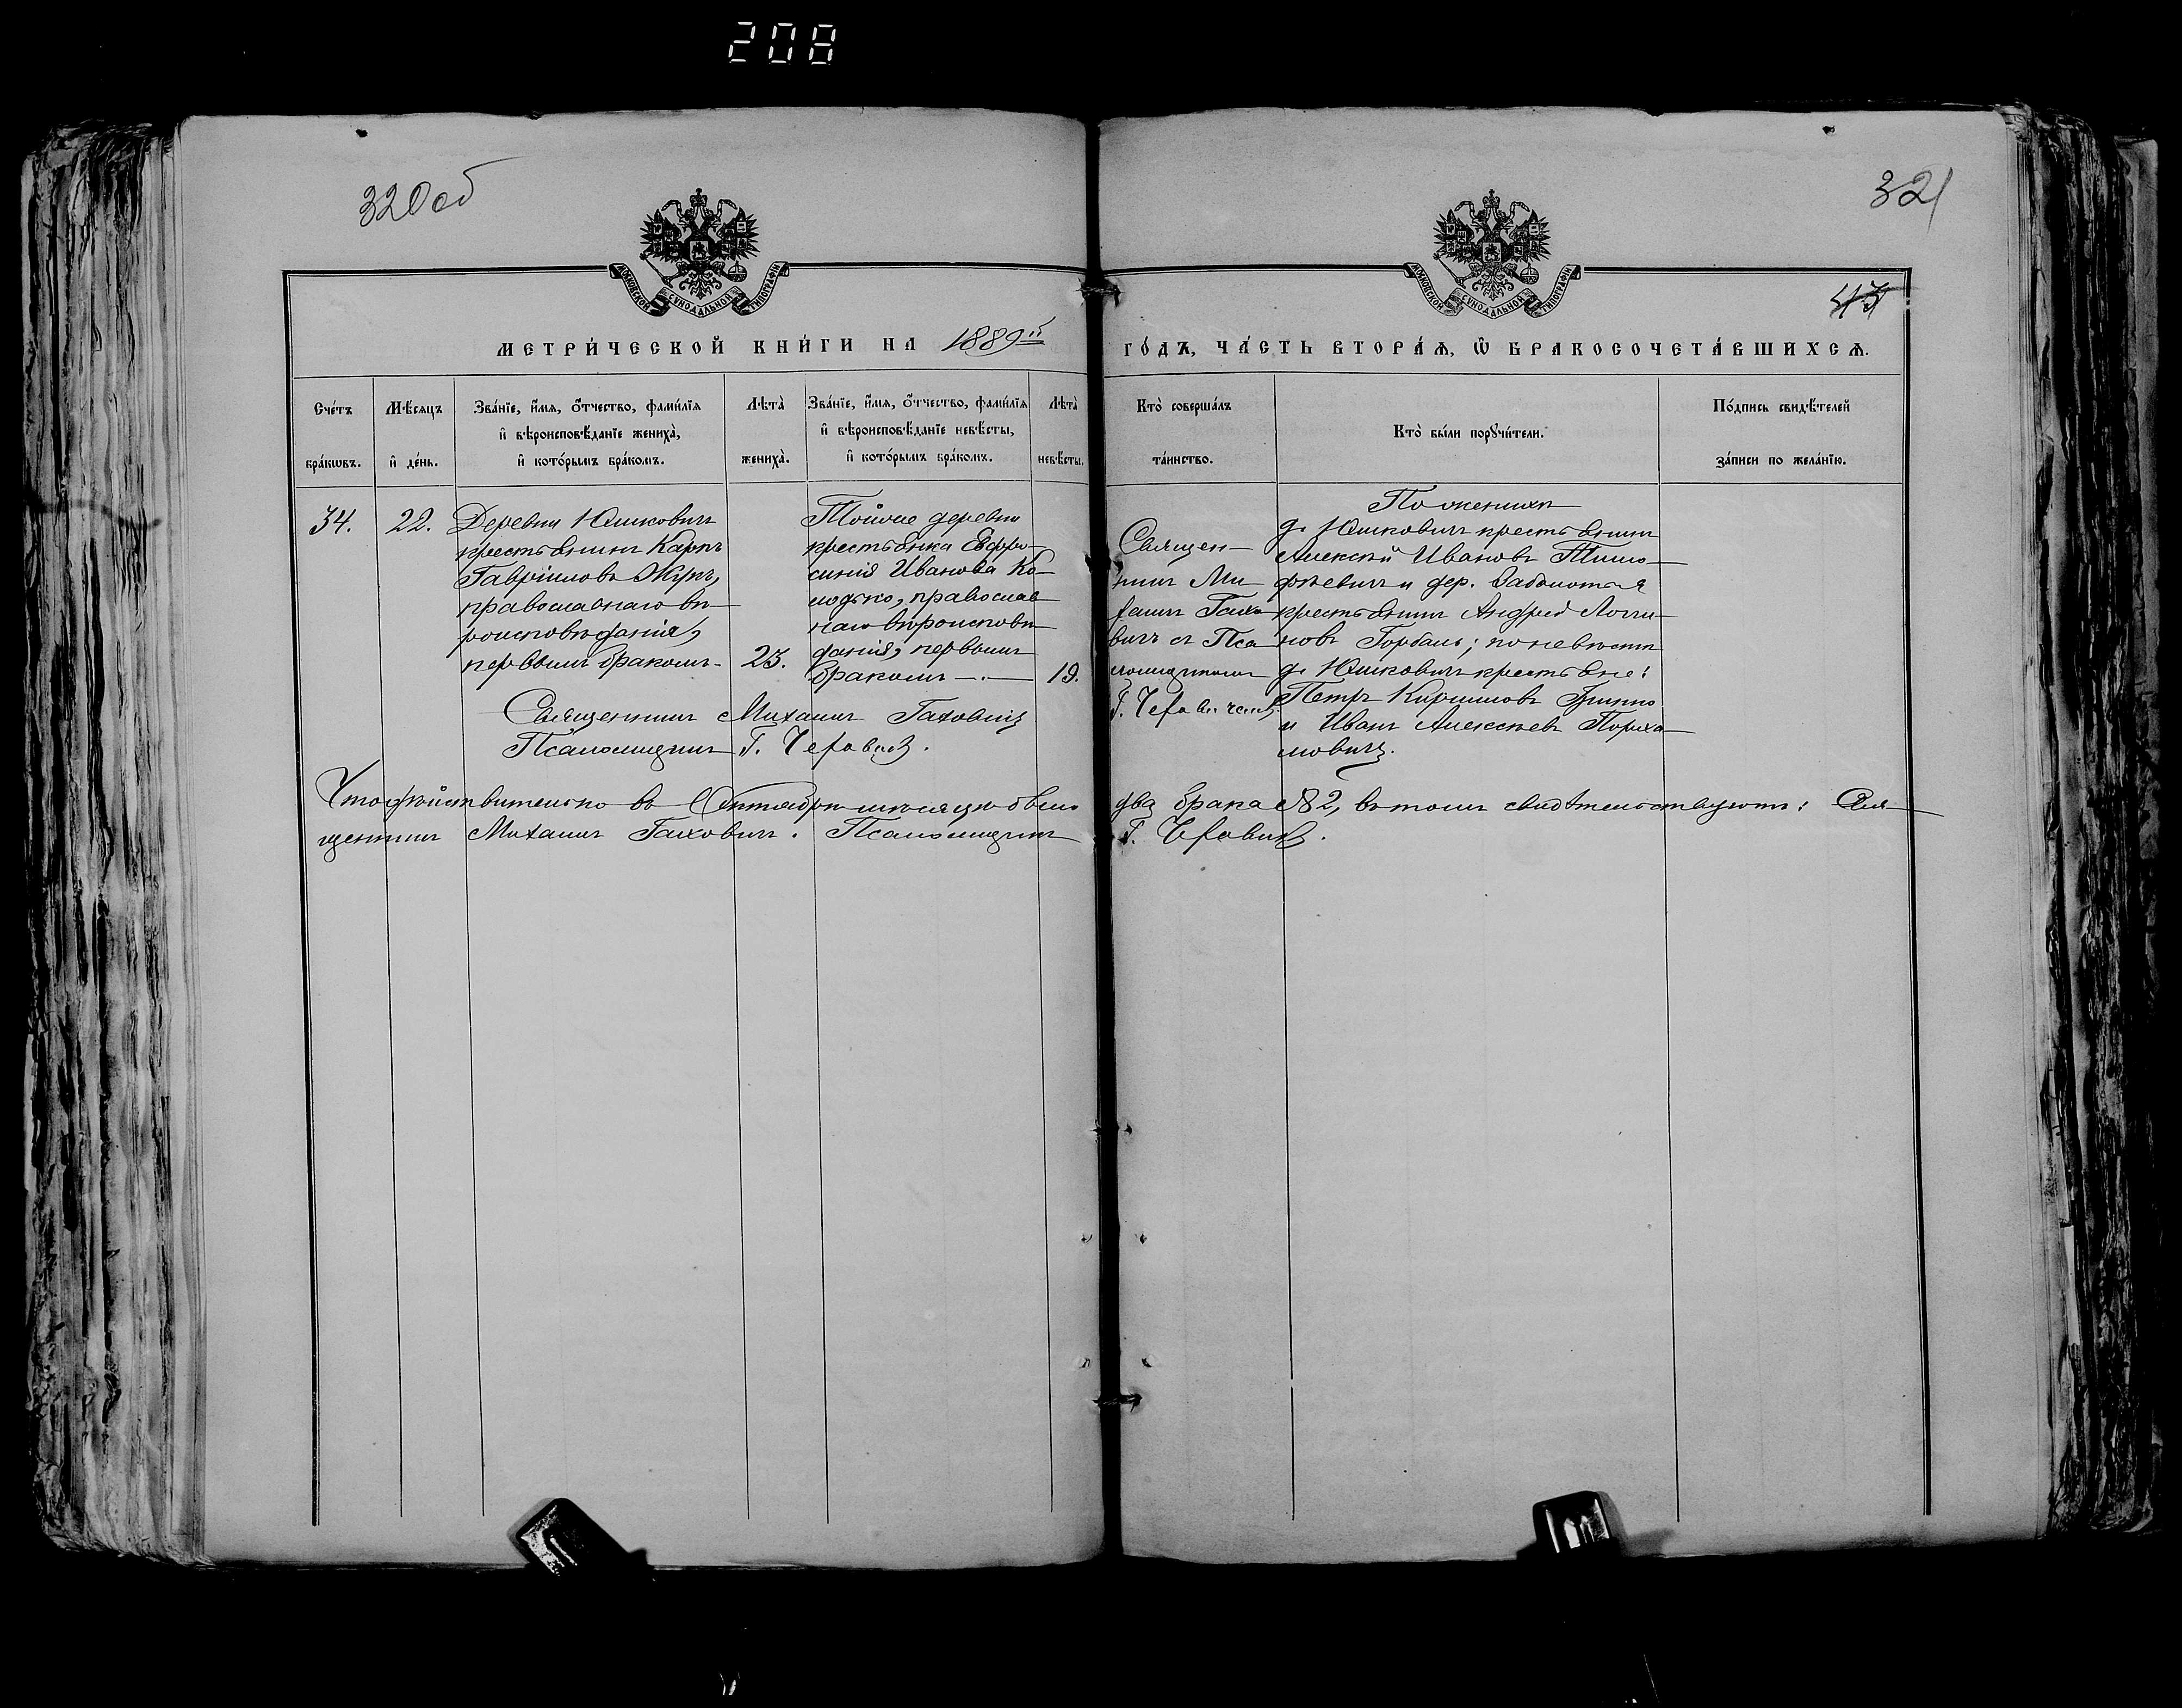 208
320об
321
МОСКОВСКОЙ СѴНОДАЛЬНОЙ ТИПОГРАФІИ
МОСКОВСКОЙ СѴНОДАЛЬНОЙ ТИПОГРАФІИ
МЕТРИ́ЧЕСКОЙ КНИ́ГИ НА 1889й
ГО́ДЪ, ЧА́СТЬ ВТОРА́Ѧ, Ѽ БРАКОСОЧЕТА́ВШИХСѦ.
Сче́тъ бра́кѡвъ.
Мѣ́сяцъ и҆ де́нь.
Зва́нїе, и҆́мѧ, ѻ҆́тчество, фами́лїѧ
и҆ вѣроисповѣ́данїе жениха̀,
и҆ кото́рымъ бра́комъ.
Лѣта̀ жениха̀.
Зва́нїе, и҆́мѧ, ѻ҆́тчество, фами́лїѧ
и҆ вѣроисповѣ́данїе невѣ́сты,
и҆ кото́рымъ бра́комъ.
Лѣта̀ невѣ́сты.
Кто̀ соверша́лъ
та́инство.
Кто̀ бы́ли порꙋчи́тели.
По́дпись свидѣ́телей
за́писи по жела́нїю.
34.
22.
Деревни Юшковичъ
крестьянинъ Карпъ
Гавріиловъ Жукъ,
православнаго вѣ-
роисповѣданія,
первымъ бракомъ.
23.
Тойже деревни
крестьянка Евфро-
синія Иванова Ко-
лодко, православ
наго вѣроисповѣ
данія, первымъ
бракомъ
19.
Священ-
никъ Ми
хаилъ Гахо
вичъ съ Пса
ломщикомъ
По женихѣ
д. Юшковичъ крестьянинъ
Алексѣй Ивановъ Тимо-
фѣевичъ и дер. Заболотья
крестьянинъ Андрей Логги-
новъ Горбачъ; по невѣстѣ
д. Юшковичъ крестьяне:
Петръ Кирилловъ
и Иванъ Алексѣевъ
Священникъ Михаилъ Гаховичъ
Псаломщикъ Г.
Что дѣйствительно въ Октябрѣ мѣсяцѣ было
два брака № 2, въ томъ свидѣтельствуютъ: Свя-
щенникъ Михаилъ Гаховичъ. Псаломщикъ
Г.